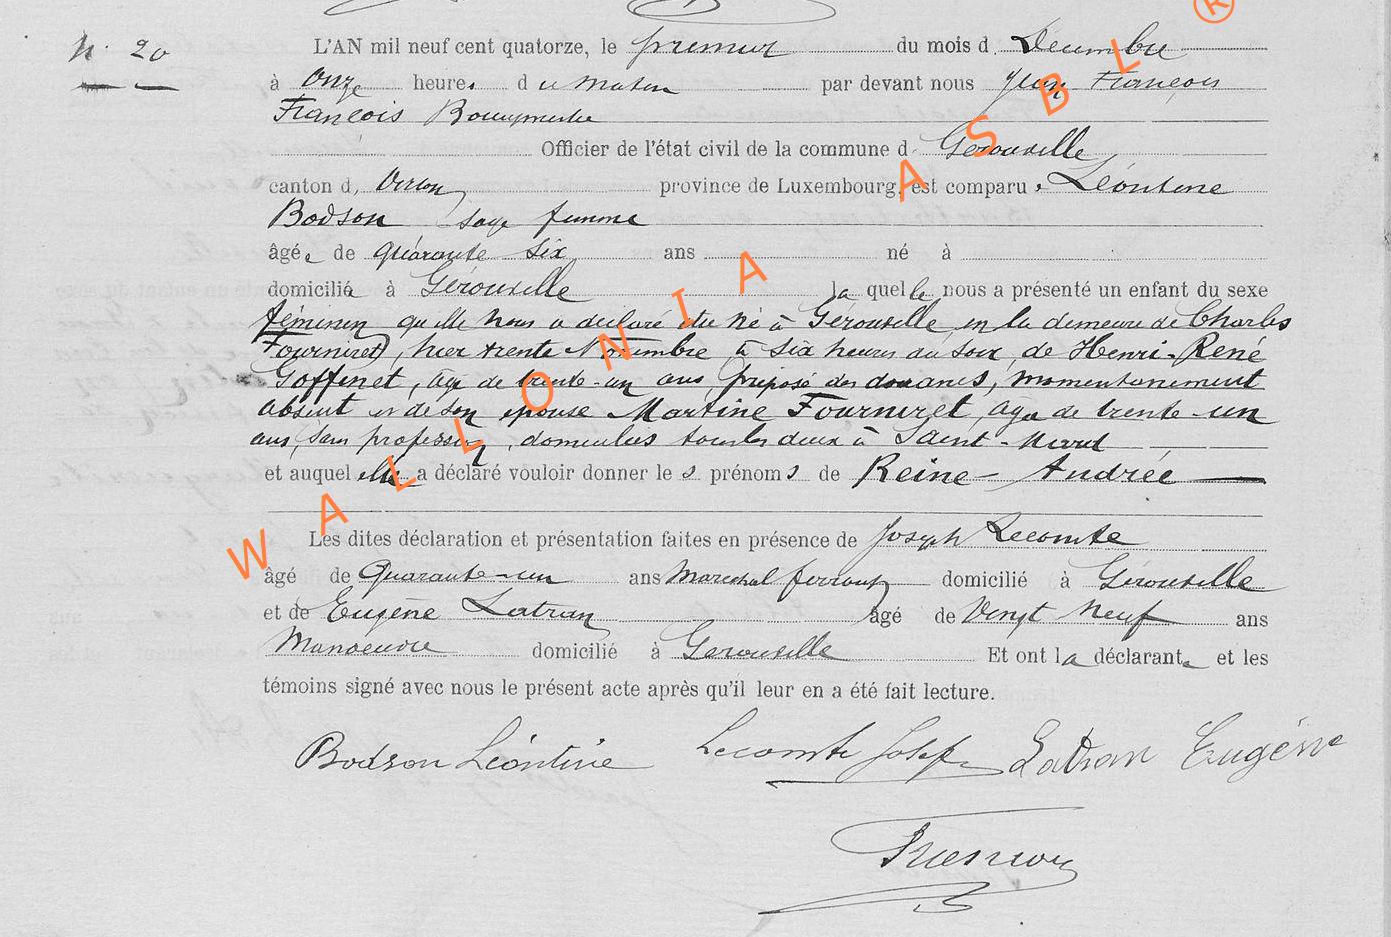 N. 20
L'AN mil neuf cent quatorze, le premier du mois d. Décembre
à onze heures du matin par devant nous Jean François
François
Officier de l'état civil de la commune d Gérouville
canton d. Virton province de Luxembourg, est comparue Léontine
Bodson sage femme
âgée de quarante six ans né à
domiciliée à Gérouville laquelle nous a présenté un enfant du sexe
féminin qu'elle nous a déclaré être né à Gérouville en la demeure de Charles
Fourniret, hier trente Novembre à six heures du soir, de Henri-René
Goffinet, âgé de trente-un ans, préposé des douanes, momentanément
absent et de son épouse Martine Fourniret, âgée de trente-un
ans, sans profession, domiciliés tous les deux à Saint-
et auquel elle a déclaré vouloir donner les prénoms de Reine-Andrée
Les dites déclaration et présentation faites en présence de Joseph Lecomte
âgé de Quarante-un ans Maréchal ferrant domicilié à Gérouville
et de Eugène Latran âgé de Vingt Neuf ans
Manoeuvre domicilié à Gérouville Et ont la déclarante et les
témoins signé avec nous le présent acte après qu'il leur en a été fait lecture.
Bodson Léontine Lecomte Josep Latran Eugène
WALLONIA ASBL ®